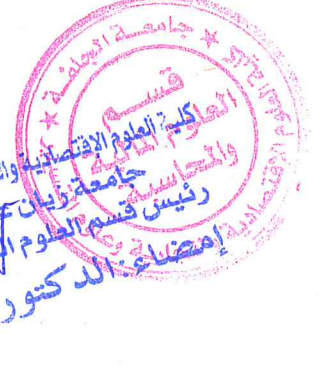 جامعة الجلفة
قسم
العلوم المالية
والمحاسبة
كلية العلوم الإقتصادية
جامعة زيان
رئيس قسم العلوم
إمضاء: الدكتور